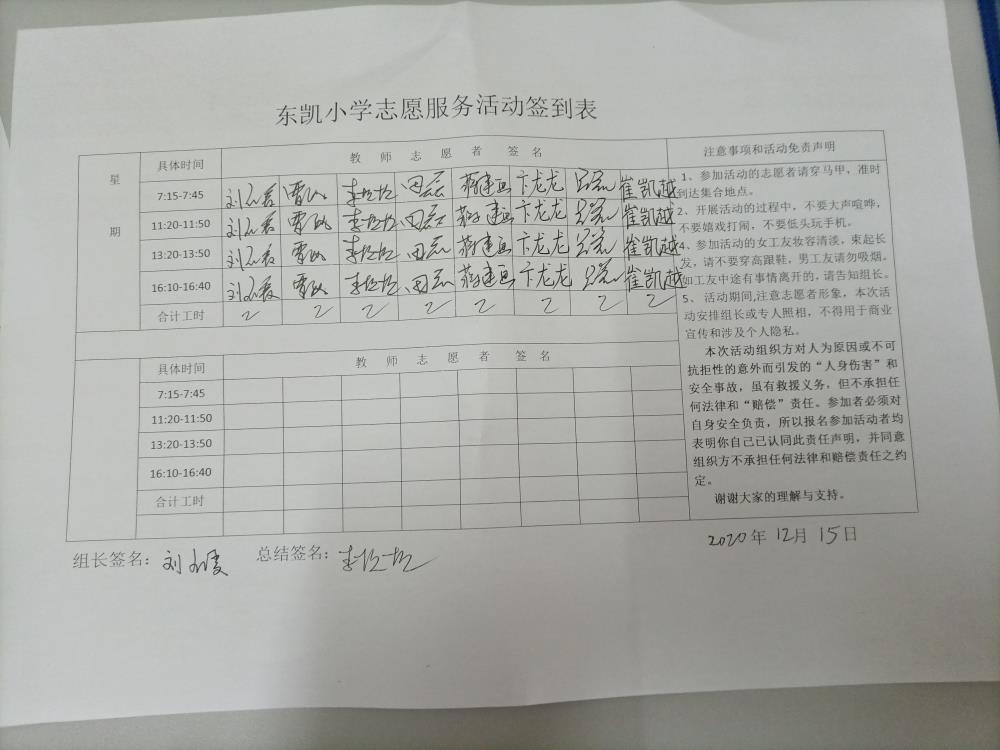 东凯小学志愿服务活动签到表
星期
具体时间 教师志愿者签名
7:15-7:45 田磊 卞龙龙 崔凯越
11:20-11:50 田磊 卞龙龙 崔凯越
13:20-13:50 田磊 卞龙龙 崔凯越
16:10-16:40 田磊 卞龙龙 崔凯越
合计工时 2 2 2 2 2 2 2 2
具体时间 教师志愿者签名
7:15-7:45
11:20-11:50
13:20-13:50
16:10-16:40
合计工时
注意事项和活动免责声明
1、参加活动的志愿者请穿马甲，准时
到达集合地点。
2、开展活动的过程中，不要大声喧哗，
不要嬉戏打闹，不要低头玩手机。
4、参加活动的女工友妆容清淡，束起长
发，请不要穿高跟鞋，男工友请勿吸烟。
如工友中途有事情离开的，请告知组长。
5、活动期间,注意志愿者形象，本次活
动安排组长或专人照相，不得用于商业
宣传和涉及个人隐私。
本次活动组织方对人为原因或不可
抗拒性的意外而引发的“人身伤害”和
安全事故，虽有救援义务，但不承担任
何法律和“赔偿”责任。参加者必须对
自身安全负责，所以报名参加活动者均
表明你自己已认同此责任声明，并同意
组织方不承担任何法律和赔偿责任之约
定。
谢谢大家的理解与支持。
组长签名： 总结签名：
2020年12月15日